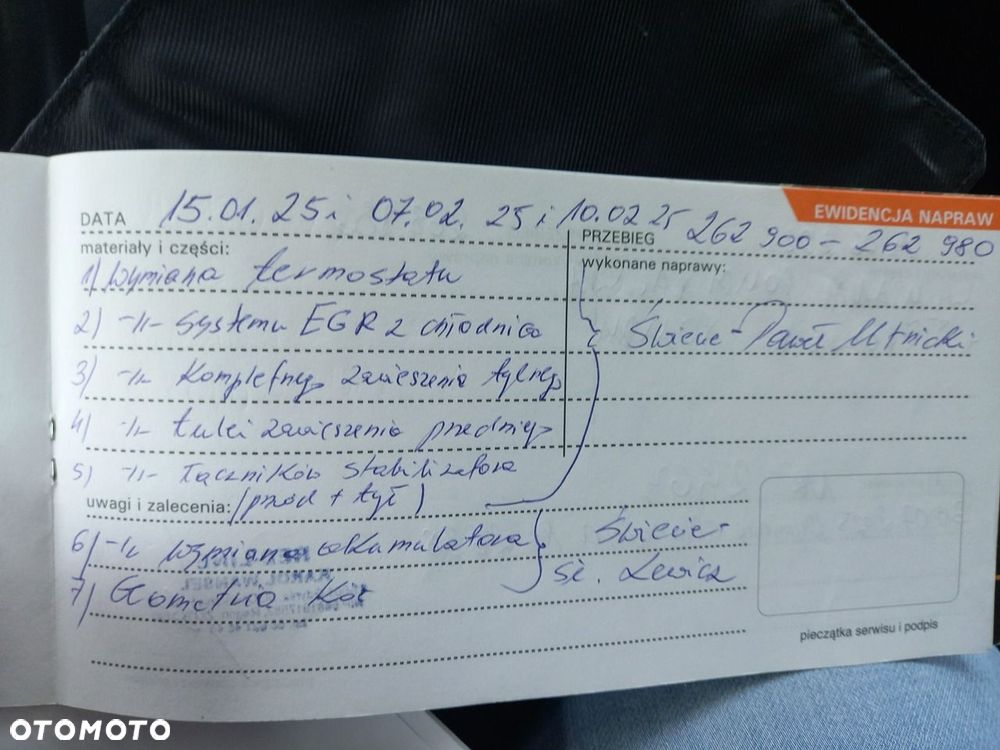 EWIDENCJA NAPRAW
DATA 15.01.25 i 07.02.25 i 10.02 25
PRZEBIEG 262 900 - 262 980
materiały i części:
wykonane naprawy:
1) Wymiana termostatu
2) -//- systemu EGR z chłodnicą
3) -//- Kompletnego zawieszenia tylnego
4) -//- tulei zawieszenia przedniego
5) -//- Łączników stabilizatora
Świecie - Paweł
uwagi i zalecenia: (przód + tył)
6) -//- wymiana akumulatora
7) Geometria Kół
Świecie -
pieczątka serwisu i podpis
OTOMOTO